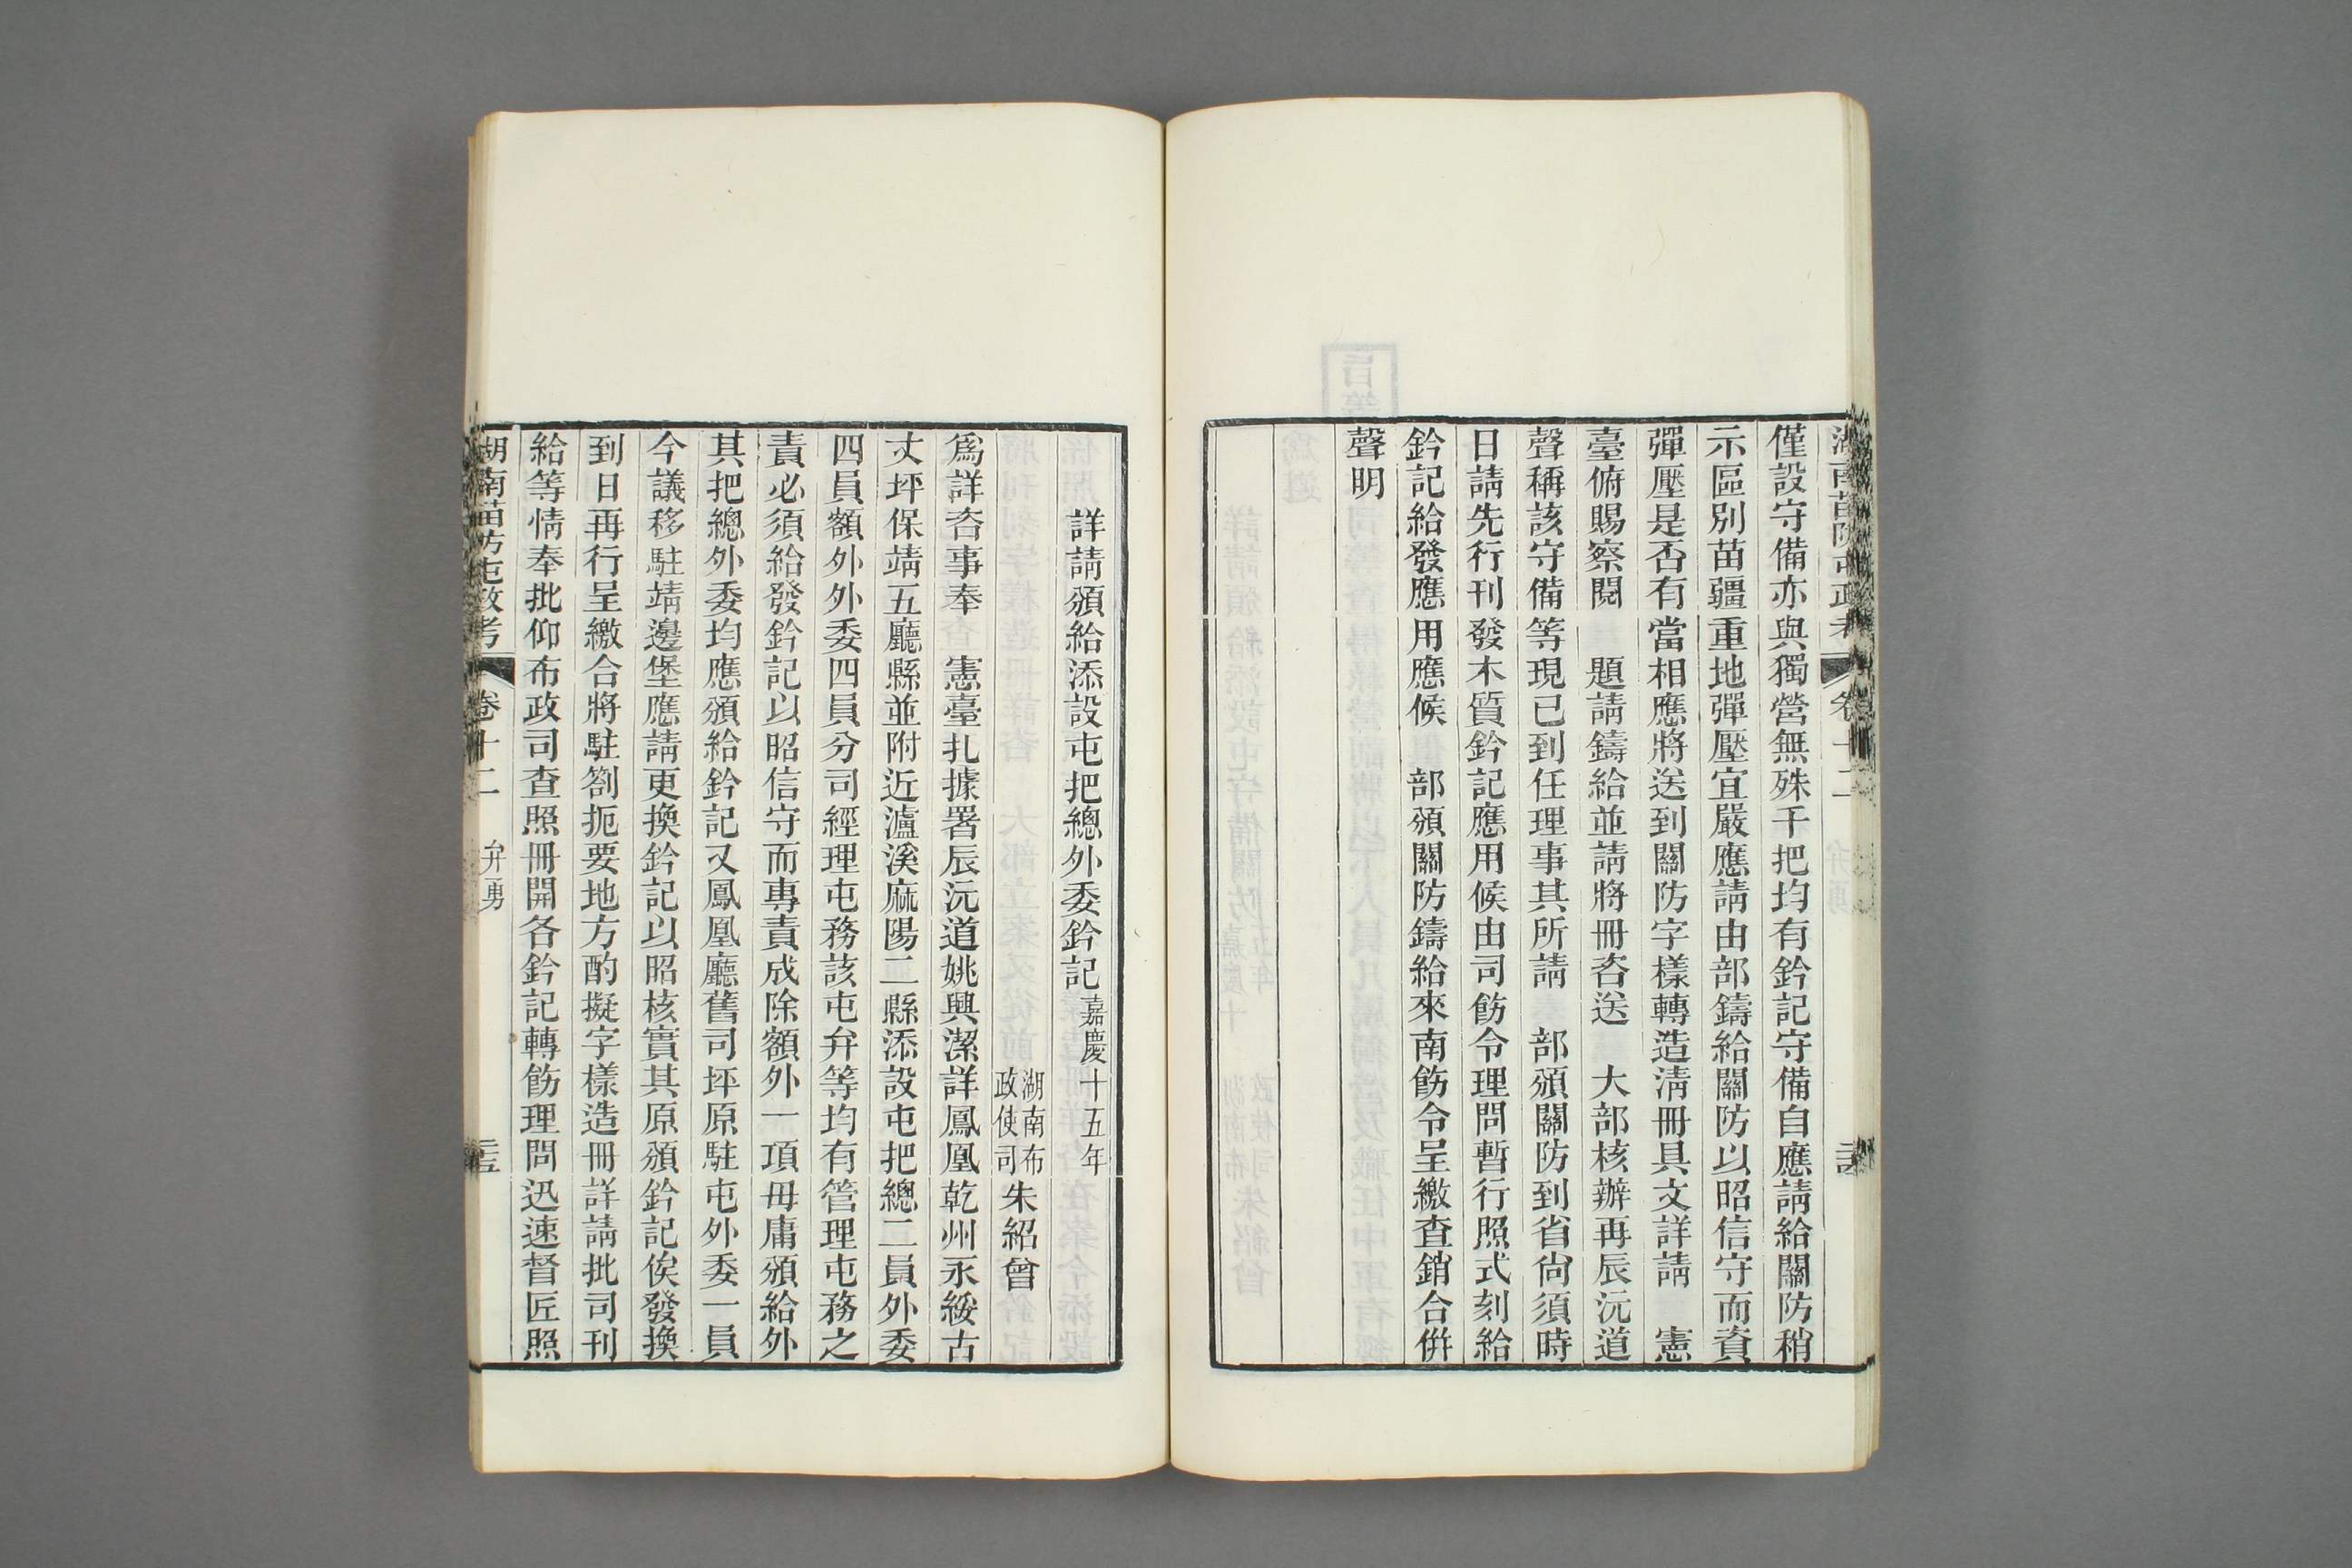 湖南苗防屯政考 卷十二
僅設守備亦與獨營無殊千把均有鈐記守備自應請給關防稍
示區別苗疆重地彈壓宜嚴應請由部鑄給關防以昭信守而資
彈壓是否有當相應將送到關防字樣轉造清冊具文詳請 憲
臺俯賜察閱 題請鑄給並請將冊咨送 大部核辦再辰沅道
聲稱該守備等現已到任理事其所請 部頒關防到省尙須時
日請先行刊發木質鈐記應用候由司飭令理問暫行照式刻給
鈐記給發應用應候 部頒關防鑄給來南飭令呈繳查銷合併
聲明
詳請頒給添設屯把總外委鈐記 嘉慶十五年
湖南布政使司朱紹曾
爲詳咨事奉 憲臺扎據署辰沅道姚興潔詳鳳凰乾州永綏古
丈坪保靖五廳縣並附近瀘溪麻陽二縣添設屯把總二員外委
四員額外外委四員分司經理屯務該屯弁等均有管理屯務之
責必須給發鈐記以昭信守而專責成除額外一項毋庸頒給外
其把總外委均應頒給鈐記又鳳凰廳舊司坪原駐屯外委一員
今議移駐靖邊堡應請更換鈐記以昭核實其原頒鈐記俟發換
到日再行呈繳合將駐劄扼要地方酌擬字樣造冊詳請批司刊
給等情奉批仰布政司查照冊開各鈐記轉飭理問迅速督匠照
湖南苗防屯政考 卷十二 弁勇 二十五